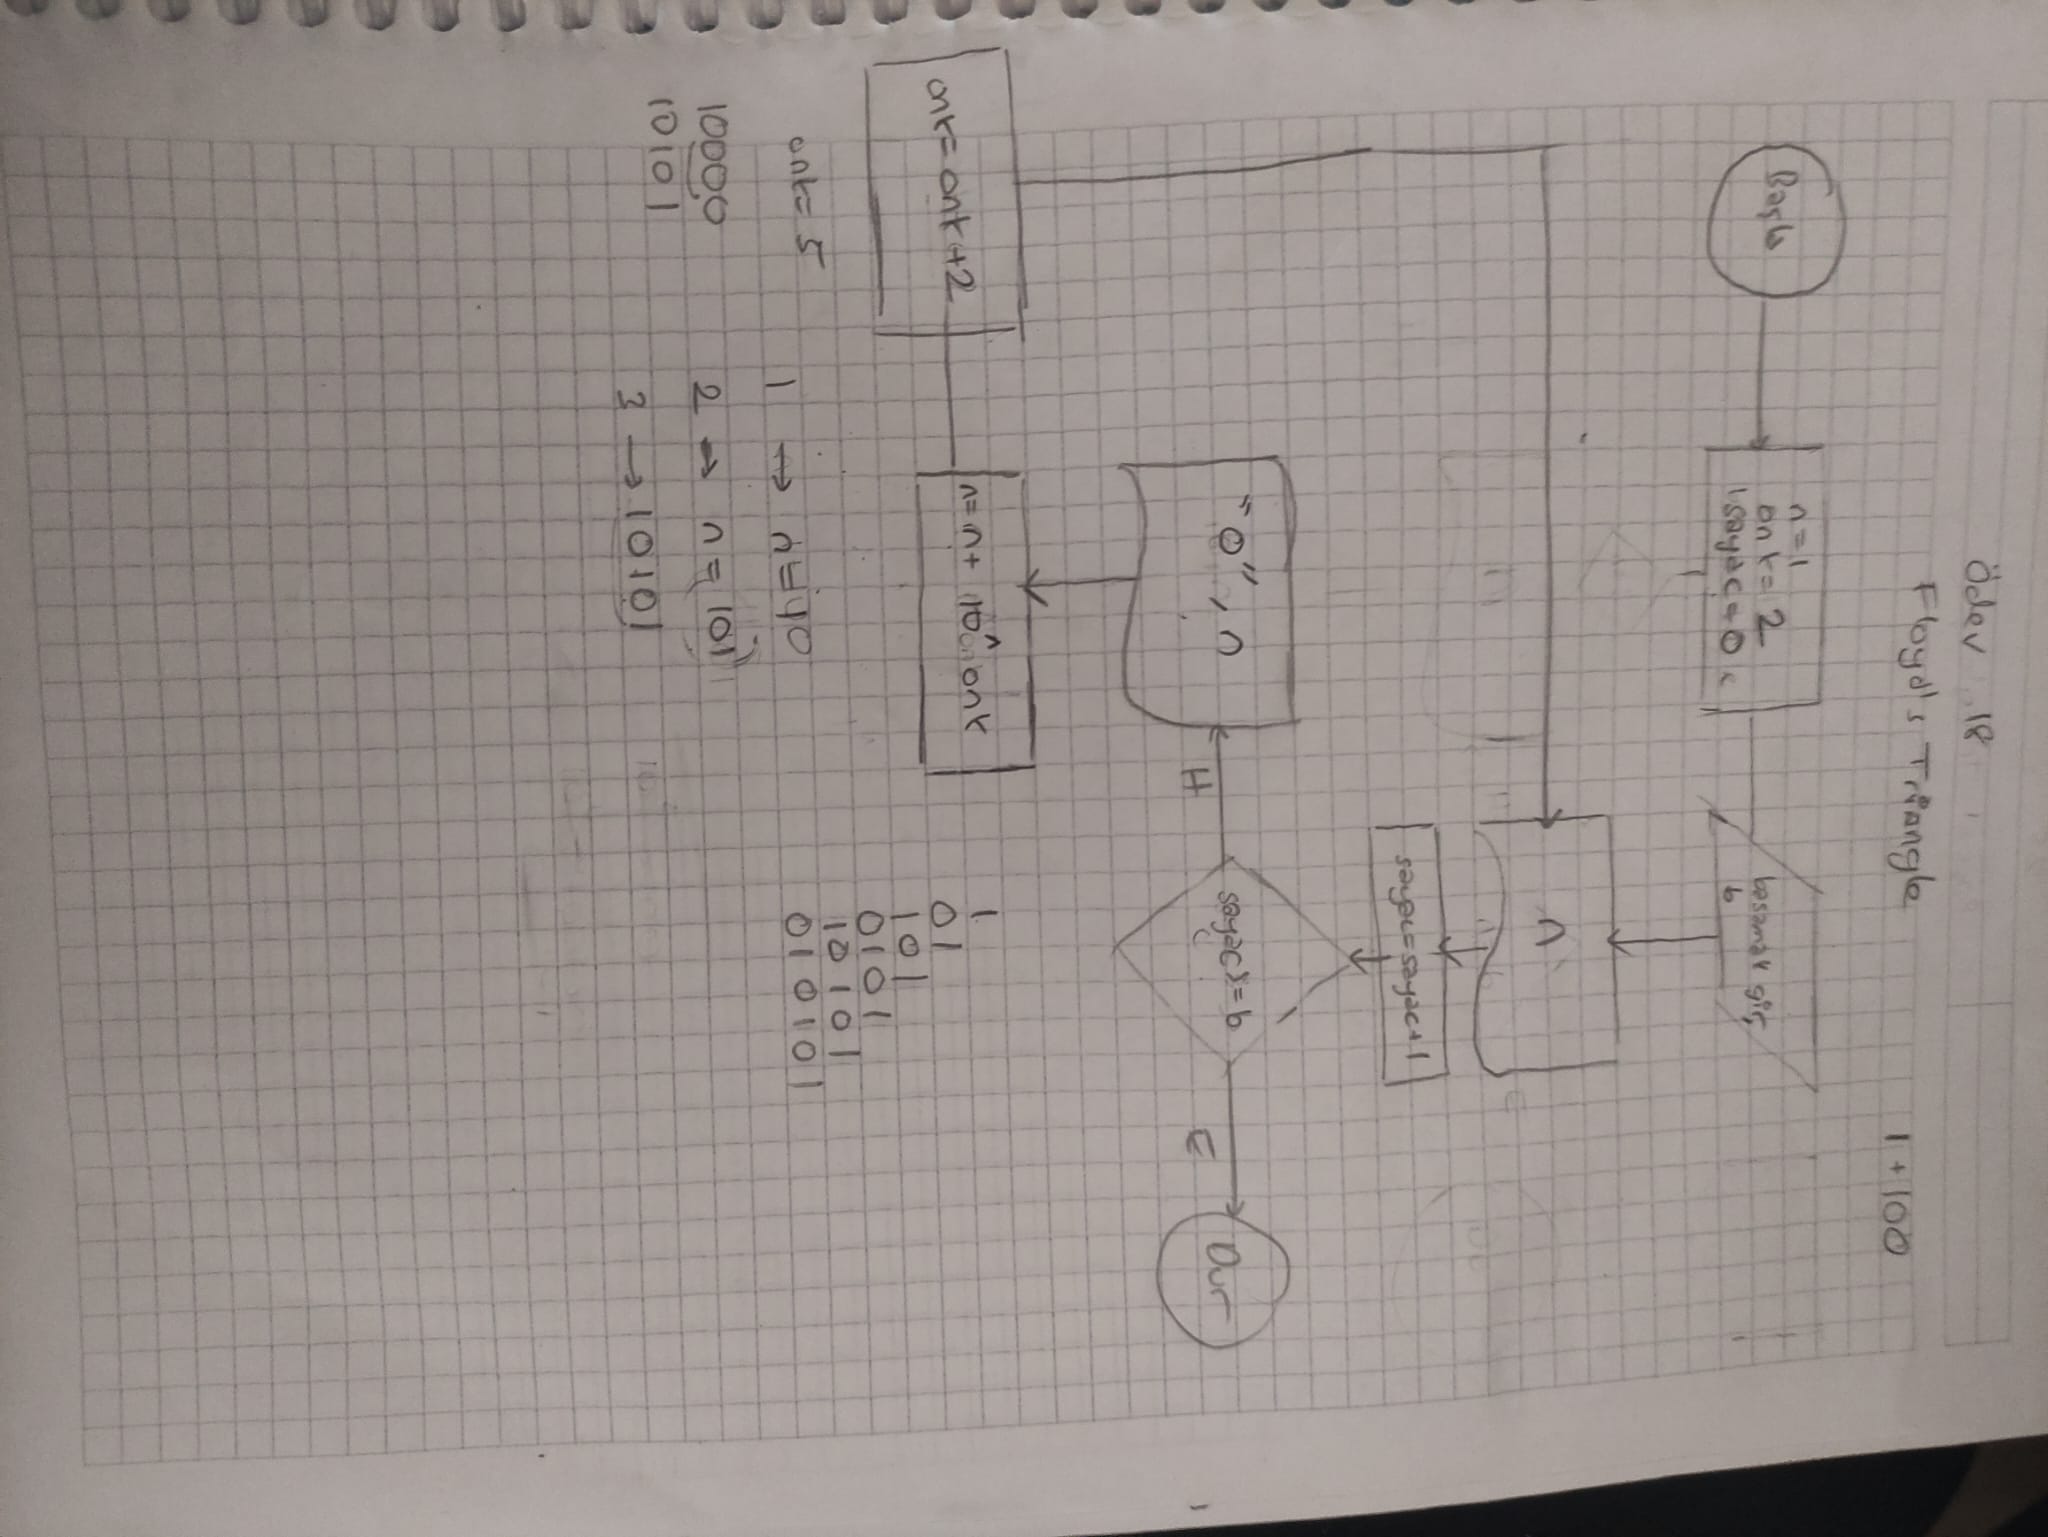 Ödev 18
Floyd's Triangle
1+100
Başla
n=1
onk=2
sayac=0
basamak gir,
b
n
sayac=sayac+1
sayaç>=b
H
E
Dur
"0", n
n=n+10^onk
onk=onk+2
1
01
101
0101
10101
010101
onk=5
10000
10101
1 →
2 → n=101
3 → 10101